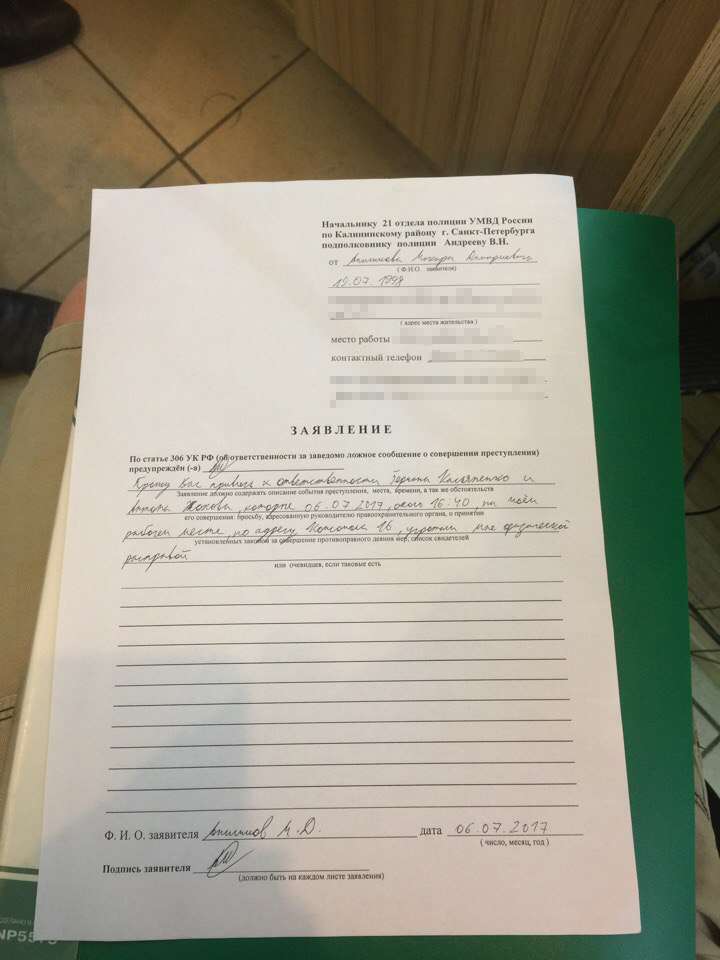 Начальнику 21 отдела полиции УМВД России
по Калининскому району г. Санкт-Петербурга
подполковнику полиции Андрееву В.Н.
от
( Ф.И.О заявителя)
19.07.1998
( адрес места жительства )
место работы
контактный телефон
ЗАЯВЛЕНИЕ
По статье 306 УК РФ (об ответственности за заведомо ложное сообщение о совершении преступления)
предупреждён (-а)
Прошу Вас привлечь к ответственности и
Заявление должно содержать описание события преступления, места, времени, а так же обстоятельств
которые 06.07.2017, около 16:40, на моём
его совершения: просьбу, адресованную руководителю правоохранительного органа, о принятии
рабочем месте, по адресу 16, угрожали мне физической
установленных законом за совершение противоправного деяния мер, список свидетелей
расправой
или очевидцев, если таковые есть
Ф. И. О. заявителя М.Д. дата 06.07.2017
( число, месяц, год )
Подпись заявителя
(должно быть на каждом листе заявления)
NP55